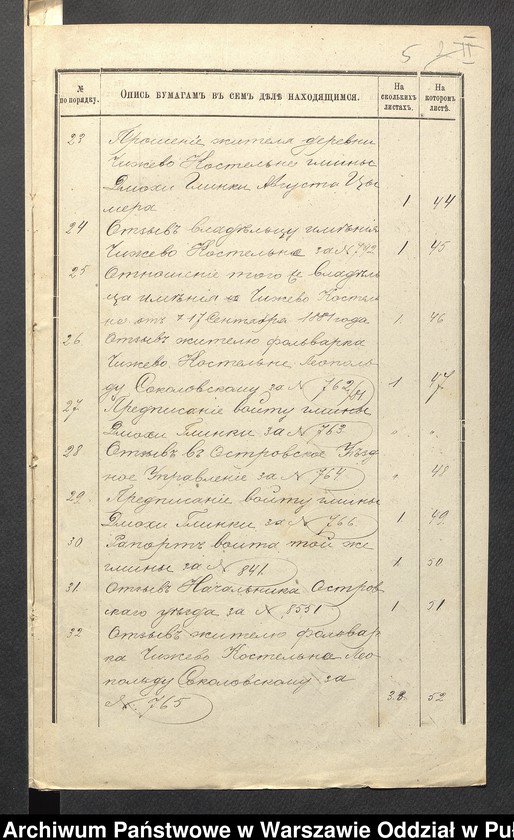 5 2 II
№ по порядку. Опись бумагамъ въ семъ дѣлѣ находящимся. На сколькихъ листахъ. На которомъ листѣ.
23 Прошеніе жителя деревни
Чижево Костельне гмины
Дмохи Глинки Августа Цы
мера 1 44
24 Отзывъ владѣльцу имѣнія
Чижево Костельне за № 742 1 45
25 Отношеніе того же владѣль
ца имѣнія Чижево Костел
не отъ 17 Сентября 1881 года 1 46
26 Отзывъ жителю фольварка
Чижево Костельне Леополь
ду Соколовскому за № 762/81 1 47
27 Предписаніе войту гмины
Дмохи Глинки за № 763 " "
28 Отзывъ въ Островское Уѣзд
ное Управленіе за № 764 " 48
29 Предписаніе войту гмины
Дмохи Глинки за № 766 1 49
30 Рапортъ войта той же
гмины за № 841 1 50
31 Отзывъ Начальника Остров
скаго уѣзда за № 8551 1 51
32 Отзывъ жителю фольвар
ка Чижево Костельна Лео
польду Соколовскому за
№ 765 52
Archiwum Państwowe w Warszawie Oddział w Puł